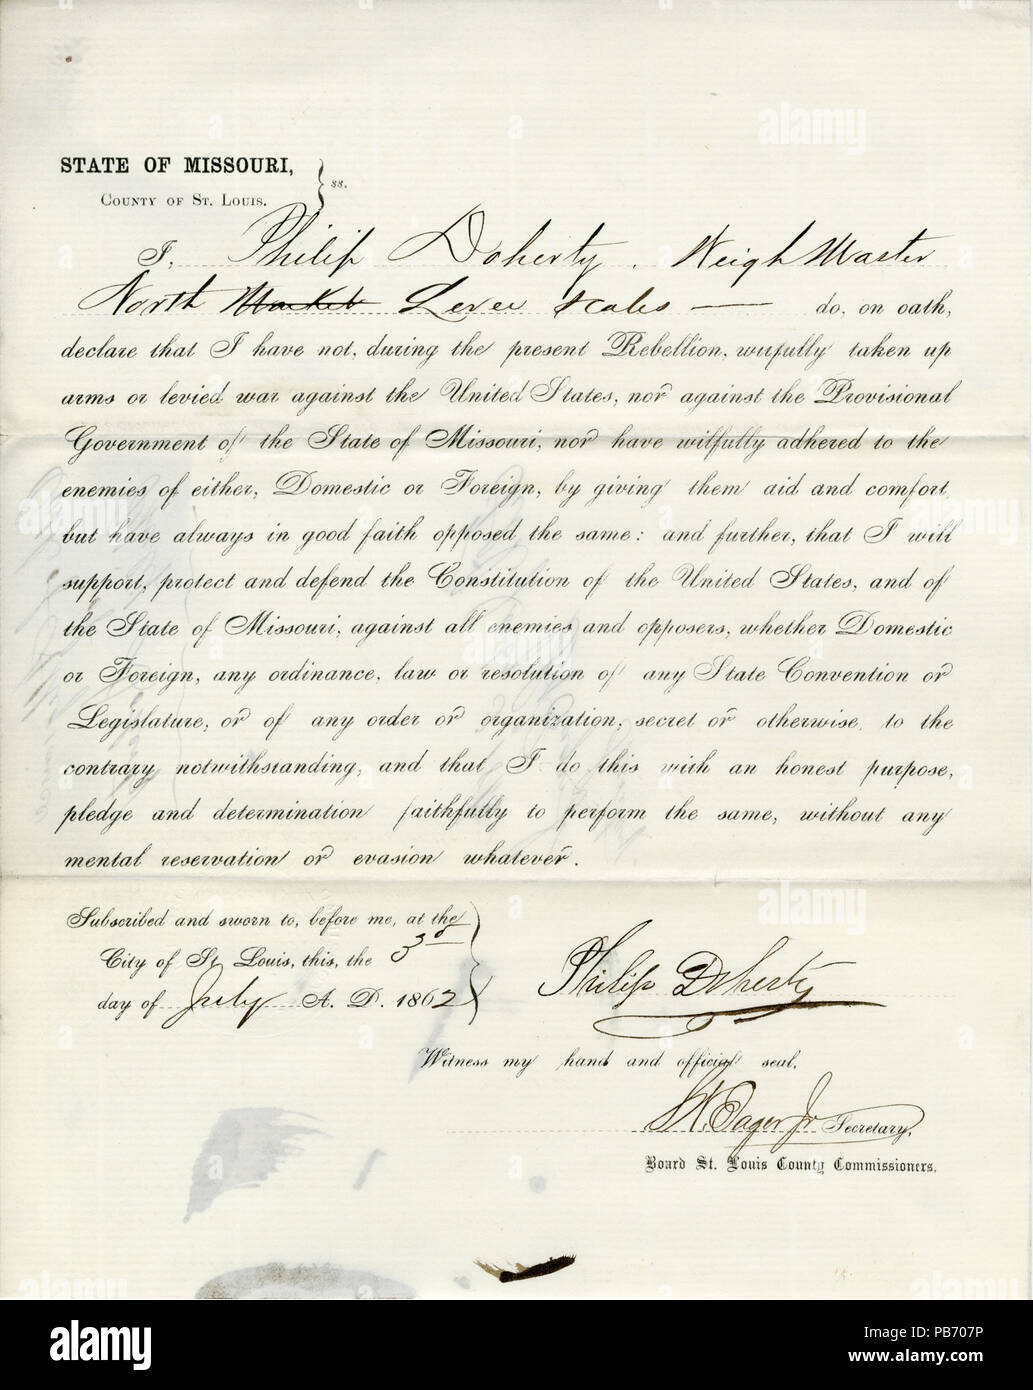 STATE OF MISSOURI,
COUNTY OF ST. LOUIS. } ss.
I, Philip Doherty, Weigh Master
North Market Levee Scales — do, on oath,
declare that I have not, during the present Rebellion, wilfully taken up
arms or levied war against the United States, nor against the Provisional
Government of the State of Missouri, nor have wilfully adhered to the
enemies of either, Domestic or Foreign, by giving them aid and comfort,
but have always in good faith opposed the same: and further, that I will
support, protect and defend the Constitution of the United States, and of
the State of Missouri, against all enemies and opposers, whether Domestic
or Foreign, any ordinance, law or resolution of any State Convention or
Legislature, or of any order or organization, secret or otherwise, to the
contrary notwithstanding, and that I do this with an honest purpose,
pledge and determination faithfully to perform the same, without any
mental reservation or evasion whatever.
Subscribed and sworn to, before me, at the
City of St. Louis, this, the 3rd
day of July A. D. 1862
Philip Doherty
Witness my hand and official seal,
Jr Secretary,
Board St. Louis County Commissioners.
alamy
PB707P
www.alamy.com